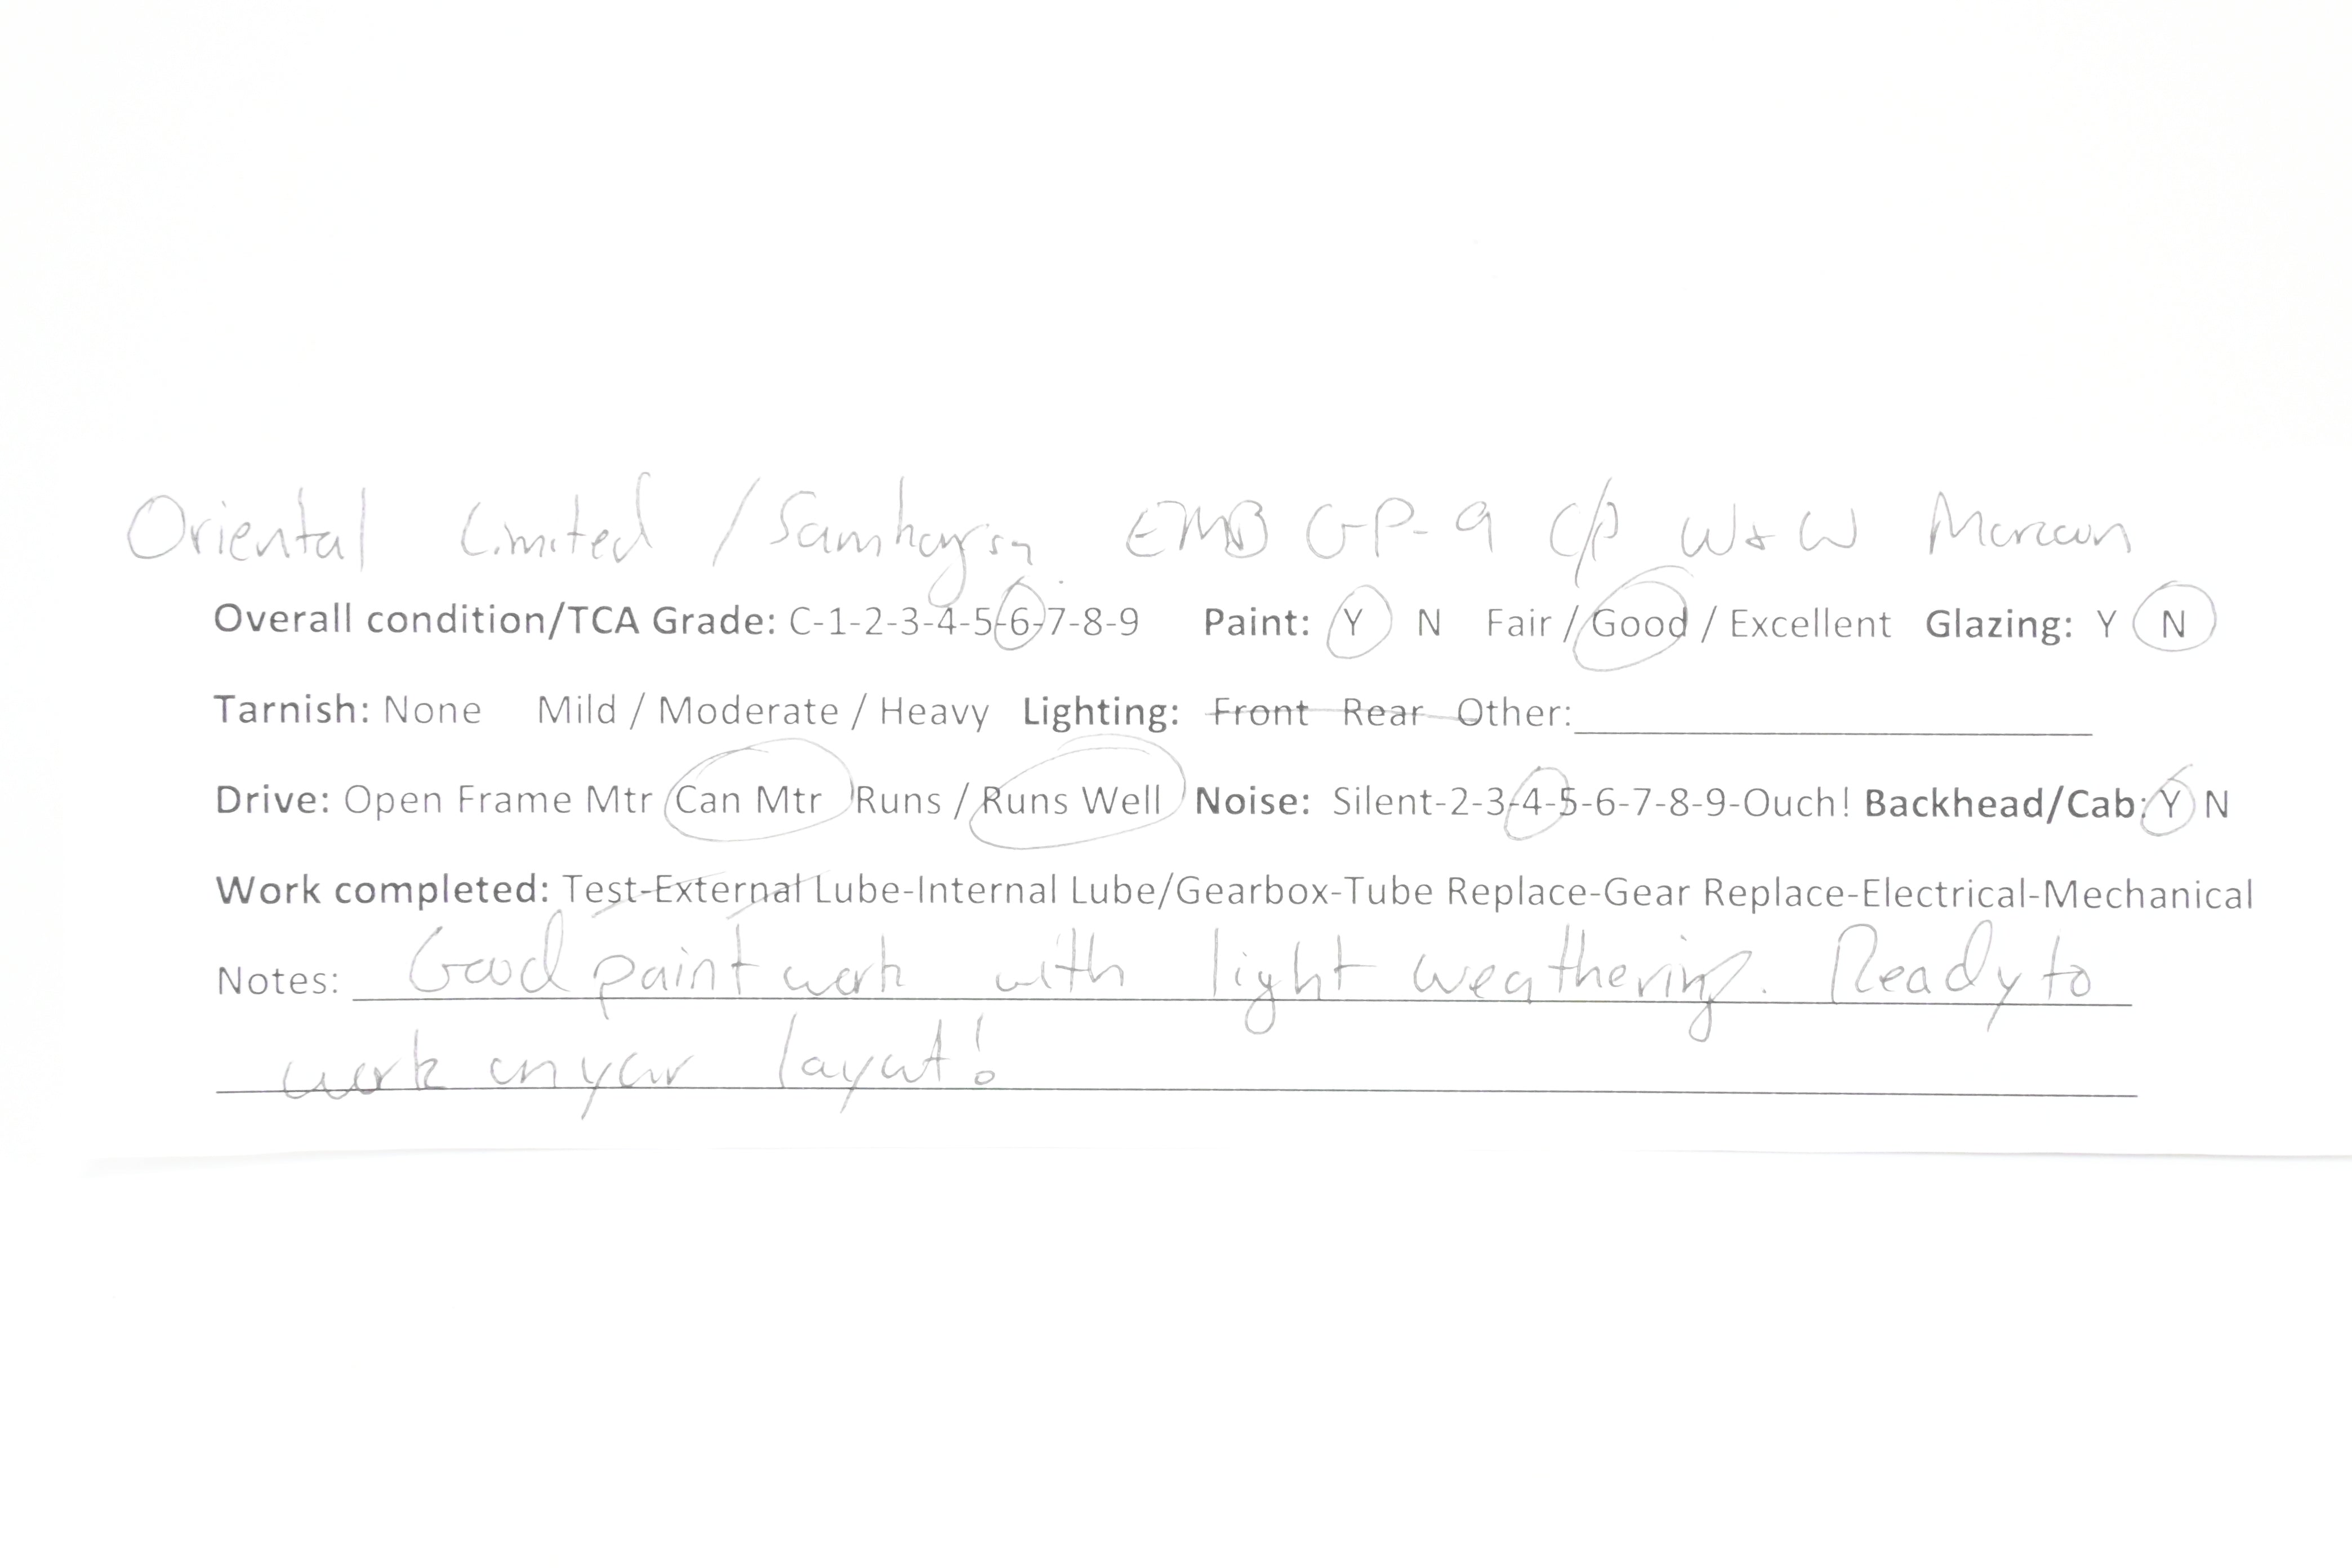 Oriental Limited / Samhongsa EMD GP-9 C/P W&W Maroon
Overall condition/TCA Grade: C-1-2-3-4-5-6-7-8-9 Paint: Y N Fair / Good / Excellent Glazing: Y N
Tarnish: None Mild / Moderate / Heavy Lighting: Front Rear Other:
Drive: Open Frame Mtr Can Mtr Runs / Runs Well Noise: Silent-2-3-4-5-6-7-8-9-Ouch! Backhead/Cab: Y N
Work completed: Test-External Lube-Internal Lube/Gearbox-Tube Replace-Gear Replace-Electrical-Mechanical
Notes: Good paint work with light weathering. Ready to
work on your layout!